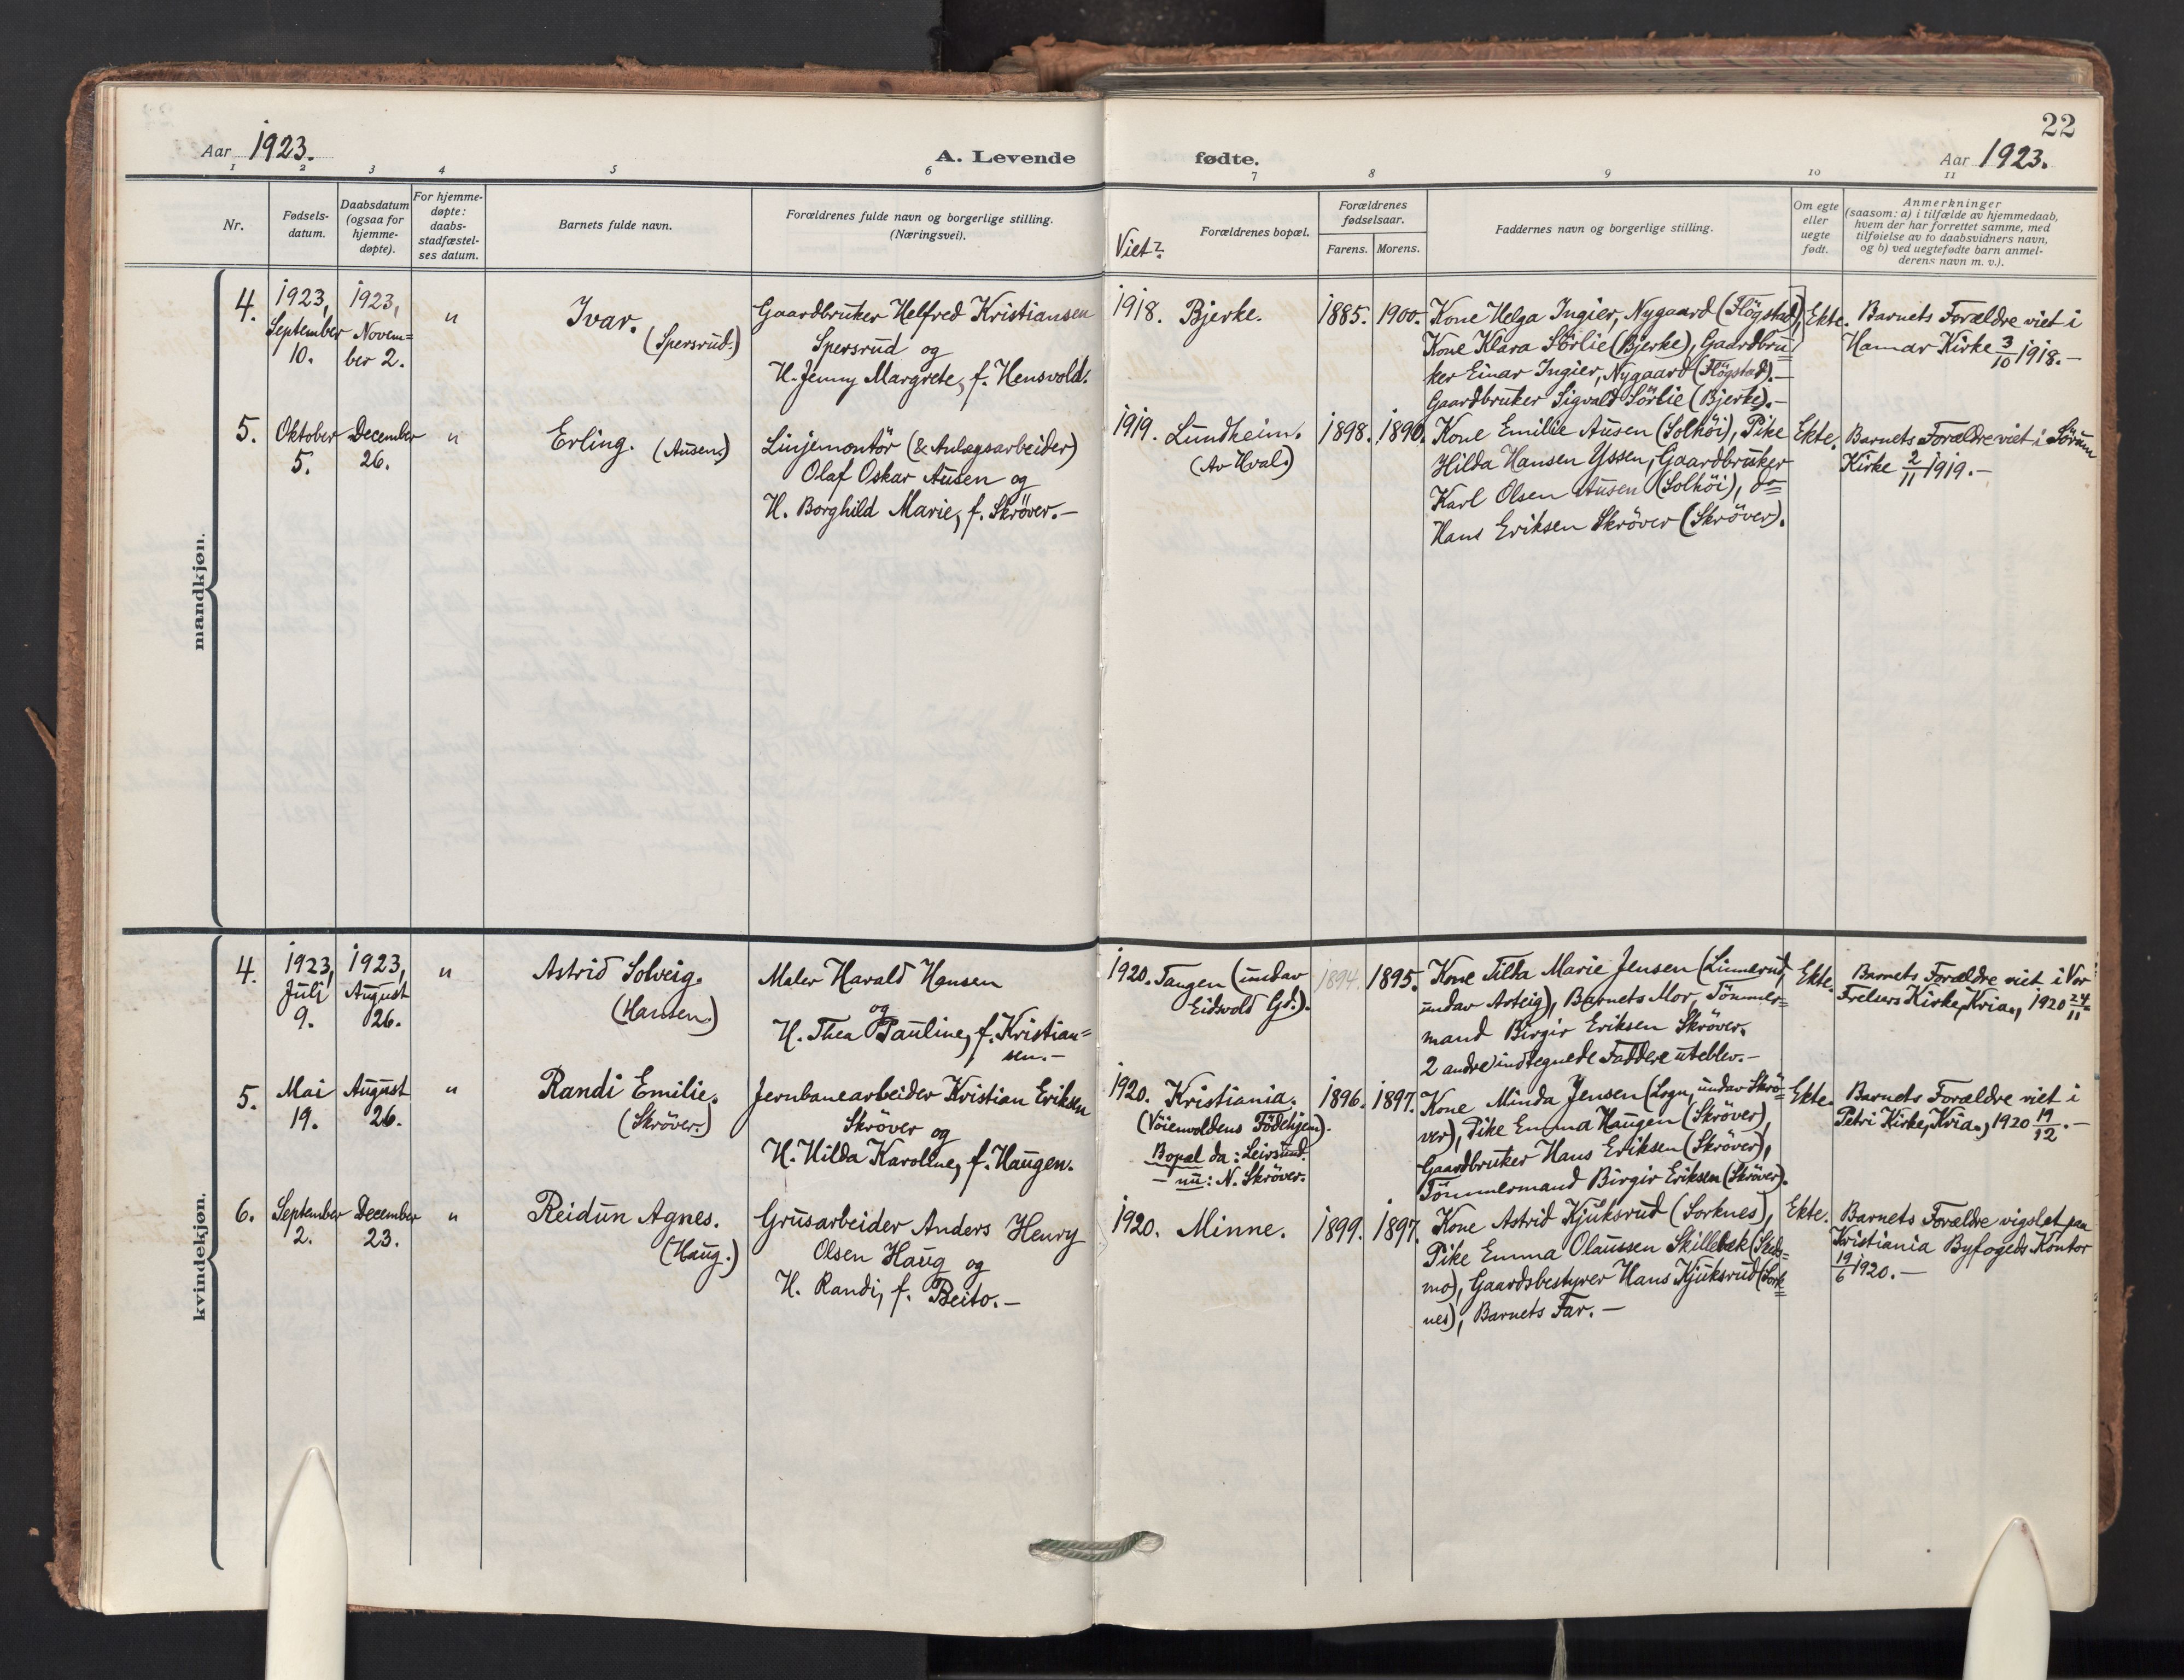 22
Aar 1923.
A. Levende fødte.
Aar 1923.
1 2 3 4 5 6 7 8 9 10 11
Nr.
Fødsels-
datum.
Daabsdatum
(ogsaa for
hjemme-
døpte).
For hjemme-
døpte:
daabs-
stadfæstel-
ses datum.
Barnets fulde navn.
Forældrenes fulde navn og borgerlige stilling.
(Næringsvei).
Viet?
Forældrenes bopæl.
Forældrenes
fødselsaar.
Farens. Morens.
Faddernes navn og borgerlige stilling.
Om egte
eller
uegte
født.
Anmerkninger
(saasom: a) i tilfælde av hjemmedaab,
hvem der har forrettet samme, med
tilføielse av to daabsvidners navn,
og b) ved uegtefødte barn anmel-
derens navn m. v.).
mandkjøn.
4.
1923,
September
10.
1923,
Novem=
ber 2.
"
Ivar.
(Spersrud.)
Gaardbruker Helfred Kristiansen
Spersrud og
H. Jenny Margrete, f. Hensvold.
1918. Bjerke.
1885. 1900.
Kone Helga Ingier, Nygaard (Flögstad),
Kone Klara Sörlie (Bjerke), Gaardbru=
ker Einar Ingier, Nygaard (Flögstad).—
Gaardbruker Sigvald Sörlie (Bjerke).—
Ekte.
Barnets Forældre viet i
Hamar Kirke 3/10 1918.—
5.
Oktober
5.
December
26.
"
Erling. (Ausen.)
Linjemontör (& Anlægsarbeider)
Olaf Oskar Ausen og
H. Borghild Marie, f. Skröver.—
1919. Lundheim.
(Av Hval.)
1898. 1890.
Kone Emilie Ausen (Solhöi), Pike
Hilda Hansen Yssen, Gaardbruker
Karl Olsen Ausen (Solhöi), do
Hans Eriksen Skröver (Skröver).
Ekte.
Barnets Forældre viet i Sörum
Kirke 2/11 1919.—
kvindekjøn.
4.
1923,
Juli
9.
1923,
August
26.
"
Astrid Solveig.
(Hansen.)
Maler Harald Hansen
og
H. Thea Pauline, f. Kristian=
sen.—
1920. Tangen (undav
Eidsvold Gd.).
1894. 1895.
Kone Tilla Marie Jensen (Linnerud,
undav Arteig), Barnets Mor, Tömmer=
mand Birgir Eriksen Skröver.
2 andre indtegnede Faddere uteblev.—
Ekte.
Barnets Forældre viet i Vor
Frelsers Kirke, Kria., 1920 24/11
5.
Mai
19.
August
26.
"
Randi Emilie.
(Skröver.)
Jernbanearbeider Kristian Eriksen
Skröver og
H. Hilda Karoline, f. Haugen.
1920. Kristiania.
(Vöienvoldens Födehjem).
Bopæl da: Leirsund.
— nu: N. Skröver.
1896. 1897.
Kone Minda Jensen (Logn, undav Skrö=
ver), Pike Emma Haugen (Skröver),
Gaardbruker Hans Eriksen (Skröver),
Tömmermand Birgir Eriksen (Skröver).
Ekte.
Barnets Forældre viet i
Petri Kirke, Kria., 1920 19/12.—
6.
September
2.
December
23.
"
Reidun Agnes.
(Haug.)
Grusarbeider Anders Henry
Olsen Haug og
H. Randi, f. Beito.—
1920. Minne.
1899. 1897.
Kone Astrid Kjuksrud (Sorknes),
Pike Emma Olaussen Skillebæk (Skeds=
mo), Gaardsbestyrer Hans Kjuksrud (Sork=
nes), Barnets Far.—
Ekte.
Barnets Forældre vigslet paa
Kristiania Byfogeds Kontor
19/6 1920.—